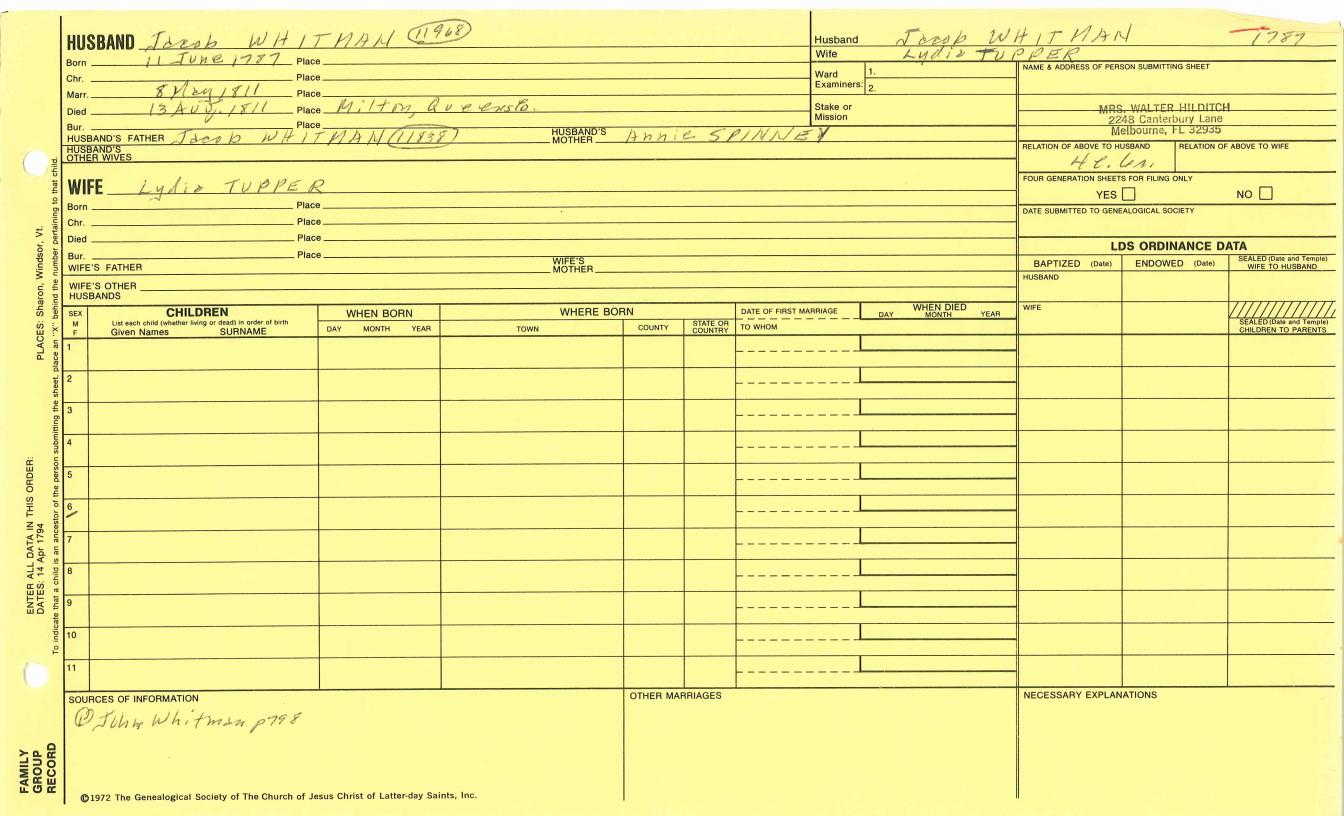 HUSBAND Jacob WHITMAN 11968
Born 11 June 1787 Place
Chr. Place
Marr. 8 May 1811 Place
Died 13 Aug. 1811 Place Milton, Queensco.
Bur. Place
HUSBAND'S FATHER Jacob WHITMAN (11838) HUSBAND'S MOTHER Annie SPINNEY
HUSBAND'S OTHER WIVES
WIFE Lydia TUPPER
Born Place
Chr. Place
Died Place
Bur. Place
WIFE'S FATHER WIFE'S MOTHER
WIFE'S OTHER HUSBANDS
Husband Jacob WHITMAN 1787
Wife Lydia TUPPER
Ward Examiners: 1. 2.
Stake or Mission
NAME & ADDRESS OF PERSON SUBMITTING SHEET
MRS. WALTER HILDITCH
2248 Canterbury Lane
Melbourne, FL 32935
RELATION OF ABOVE TO HUSBAND RELATION OF ABOVE TO WIFE
FOUR GENERATION SHEETS FOR FILING ONLY
YES NO
DATE SUBMITTED TO GENEALOGICAL SOCIETY
LDS ORDINANCE DATA
BAPTIZED (Date) ENDOWED (Date) SEALED (Date and Temple) WIFE TO HUSBAND
HUSBAND
WIFE
SEALED (Date and Temple) CHILDREN TO PARENTS
SEX M F
CHILDREN
List each child (whether living or dead) in order of birth
Given Names SURNAME
WHEN BORN
DAY MONTH YEAR
WHERE BORN
TOWN COUNTY STATE OR COUNTRY
DATE OF FIRST MARRIAGE
TO WHOM
WHEN DIED
DAY MONTH YEAR
1
2
3
4
5
6
7
8
9
10
11
SOURCES OF INFORMATION
John Whitman p798
OTHER MARRIAGES
NECESSARY EXPLANATIONS
©1972 The Genealogical Society of The Church of Jesus Christ of Latter-day Saints, Inc.
PLACES: Sharon, Windsor, Vt.
ENTER ALL DATA IN THIS ORDER:
DATES: 14 Apr 1794
To indicate that a child is an ancestor of the person submitting the sheet, place an "X" behind the number pertaining to that child.
FAMILY
GROUP
RECORD